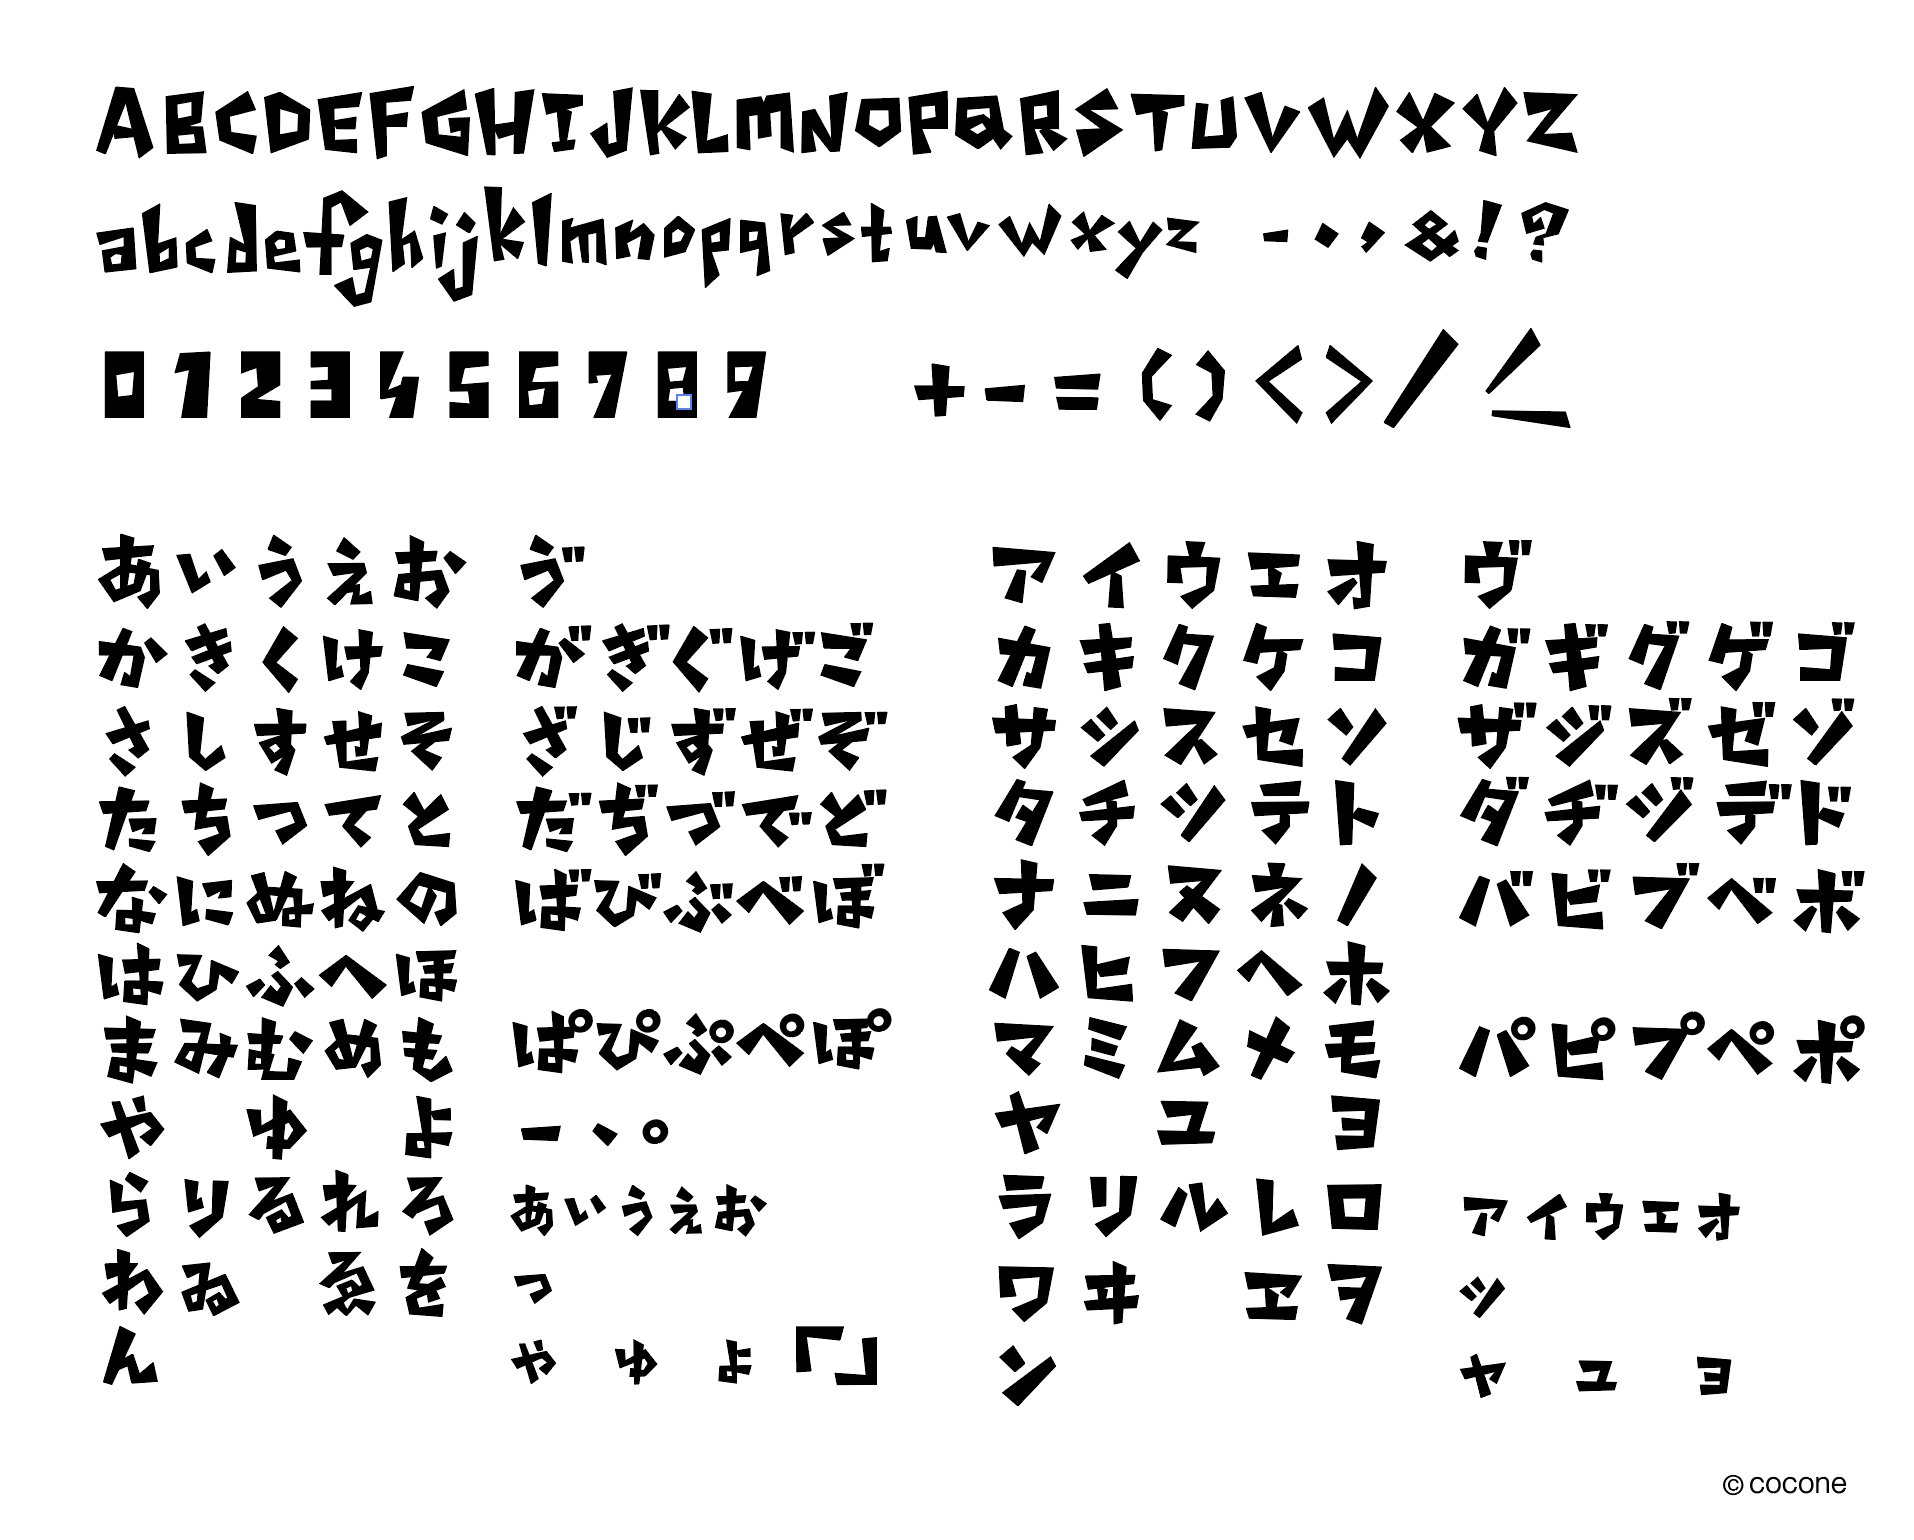 ABCDEFGHIJKLMNOPQRSTUVWXYZ
abcdefghijklmnopqrstuvwxyz -・,&!?
0123456789 +-=()<>/
あいうえお ゔ
かきくけこ がぎぐげご
さしすせそ ざじずぜぞ
たちつてと だぢづでど
なにぬねの ばびぶべぼ
はひふへほ
まみむめも ぱぴぷぺぽ
や ゆ よ ー、。
らりるれろ ぁぃぅぇぉ
わゐ ゑを っ
ん ゃ ゅ ょ「」
アイウエオ ヴ
カキクケコ ガギグゲゴ
サシスセソ ザジズゼゾ
タチツテト ダヂヅデド
ナニヌネノ バビブベボ
ハヒフヘホ
マミムメモ パピプペポ
ヤ ユ ヨ
ラリルレロ ァィゥェォ
ワヰ ヱヲ ッ
ン ャ ュ ョ
© cocone